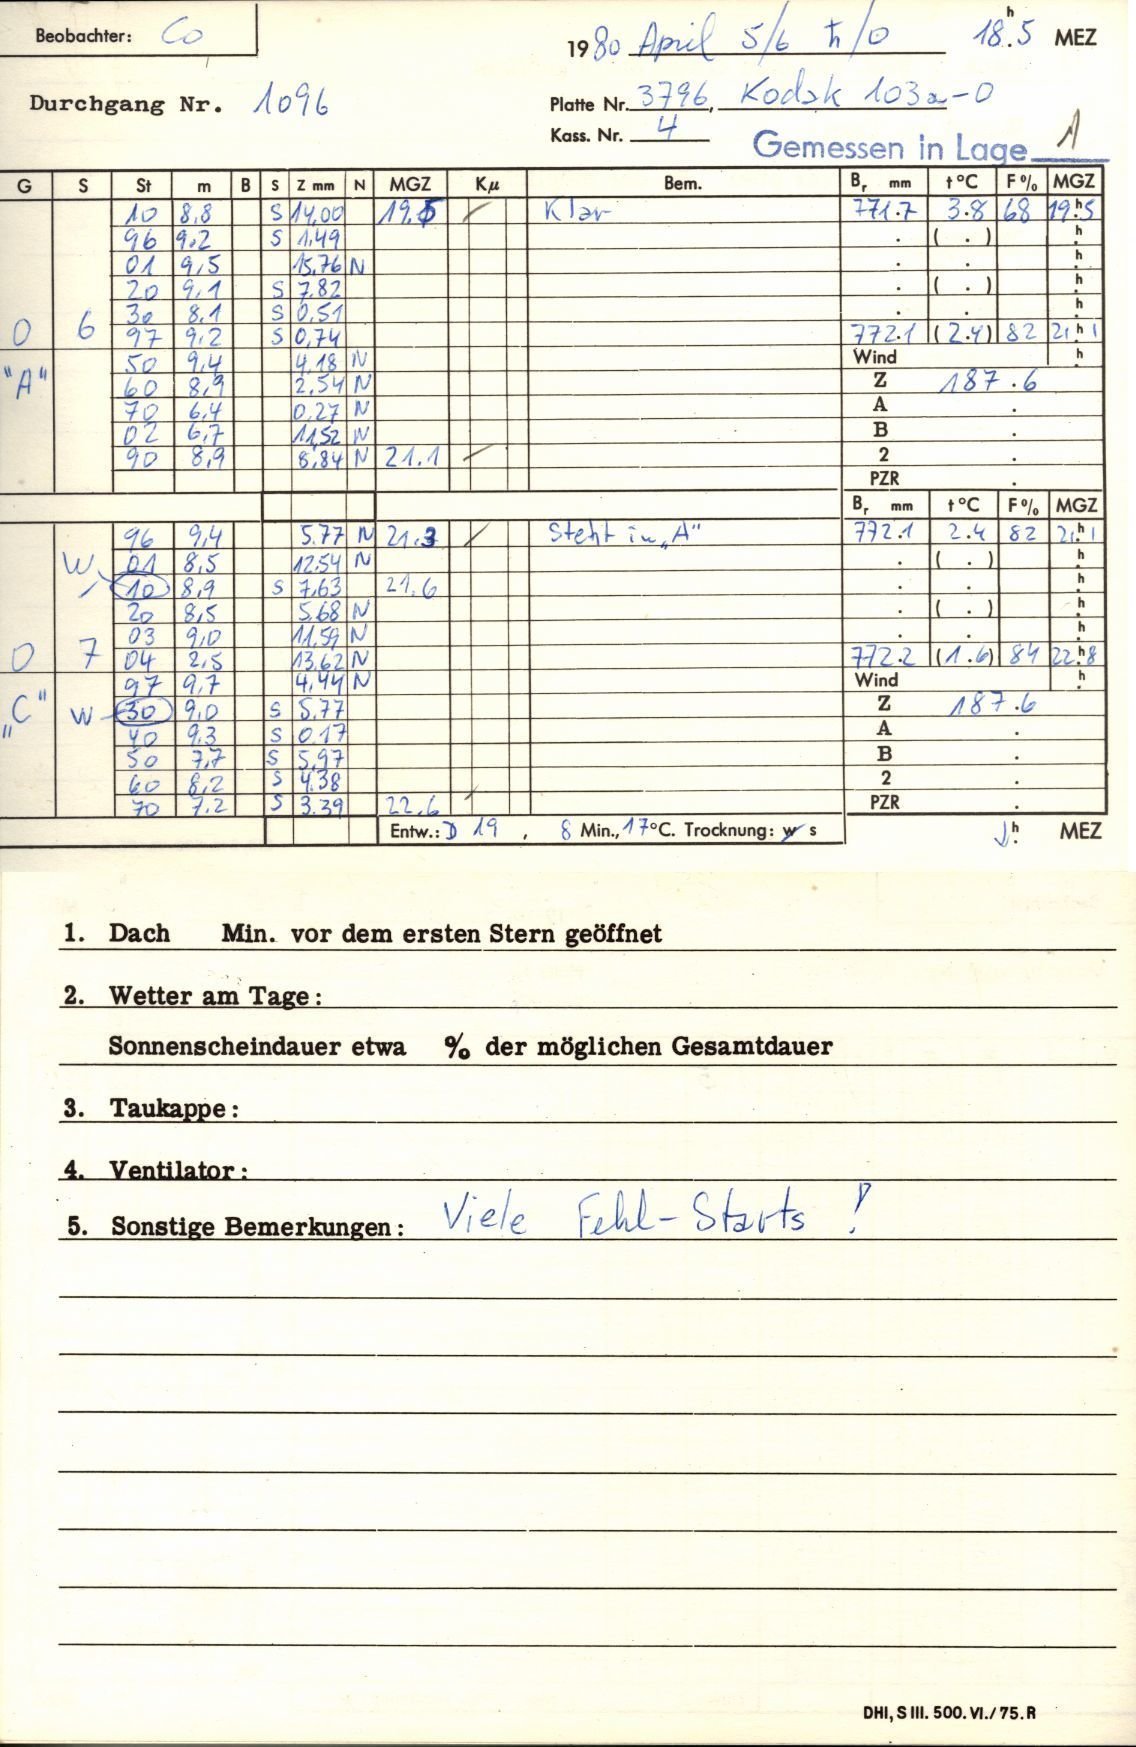 Beobachter: Co
1980 April 5/6 ħ/0 18ʰ.5 MEZ
Durchgang Nr. 1096
Platte Nr. 3796, Kodak 103a-O
Kass. Nr. 4
Gemessen in Lage 1
G S St m B S Z mm N MGZ Kμ Bem. Bᵣ mm t°C F% MGZ
10 8,8 S 14,00 19,5 Klar 771.7 3.8 68 19ʰ.5
96 9.2 S 1,49 . ( . ) ʰ.
01 9,5 15,76 N . . ʰ.
20 9,1 S 7,82 . ( . ) ʰ.
30 8,1 S 0,51 . . ʰ.
0 6 97 9,2 S 0,74 772.1 (2.4) 82 21.ʰ1
50 9,4 4,18 N Wind ʰ.
"A" 60 8,9 2,54 N Z 187.6
70 6,4 0,27 N A .
02 6,7 11,52 N B .
90 8,9 8,84 N 21.1 2 .
PZR .
Bᵣ mm t°C F% MGZ
96 9,4 5.77 N 21.3 Steht in „A" 772.1 2.4 82 21.ʰ1
W 01 8,5 12.54 N . ( . ) ʰ.
10 8,9 S 7,63 21.6 . . ʰ.
20 8,5 5,68 N . ( . ) ʰ.
03 9,0 11.59 N . . ʰ.
0 7 04 2,5 13,62 N 772.2 (1.6) 84 22.ʰ8
97 9,7 4,44 N Wind ʰ.
„C" W 30 9,0 S 5,77 Z 187.6
40 9,3 S 0,17 A .
50 7,7 S 5,97 B .
60 8,2 S 4.38 2 .
70 7.2 S 3.39 22.6 PZR .
Entw.: D 19 , 8 Min., 17°C. Trocknung: w s ʰ. MEZ
1. Dach Min. vor dem ersten Stern geöffnet
2. Wetter am Tage:
Sonnenscheindauer etwa % der möglichen Gesamtdauer
3. Taukappe:
4. Ventilator:
5. Sonstige Bemerkungen: Viele Fehl-Starts !
DHI, S III. 500. VI./75. R